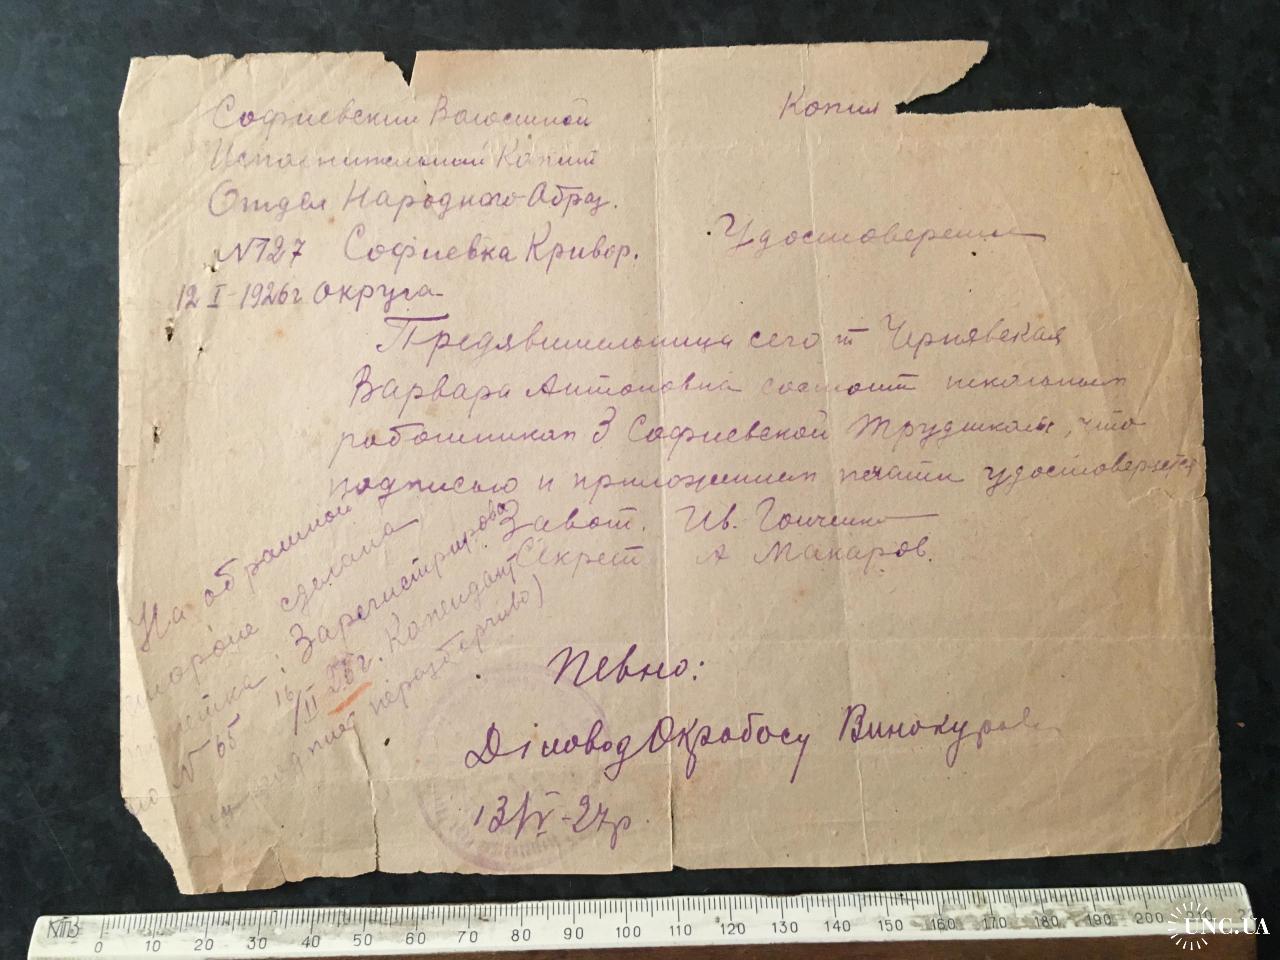 Копия
Софиевский Волостной
Исполнительный Комит
Отдел Народного Образ.
N 127 Софиевка Кривор.
12 I-1926 г округа
Удостоверение
Предявительница сего т Чернявская
Варвара Антоновна состоит школьным
работником 3 Софиевской Трудшколы, что
подписью и приложением печати удостоверяется
Завот. Ив. Гонченко
Секрет А Макаров.
На обратной
стороне сделана
отметка: Зарегистрирова
но N 65 16/II 26 г. Комендант
подпись неразборчиво)
Певно:
Діловод Окробосу Винокуров
13/IV-27р.
КПЗ 0 10 20 30 40 50 60 70 80 90 100 110 120 130 140 150 160 170 180 190 200 210
UNC.UA